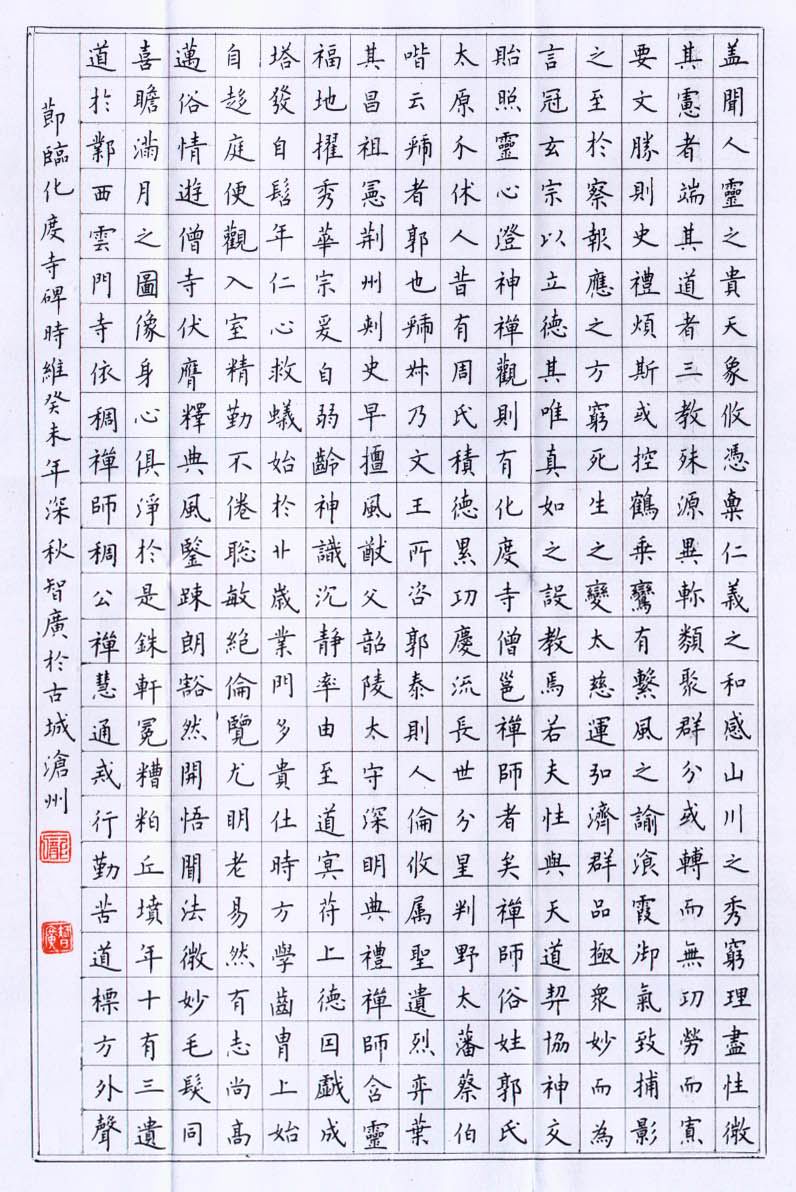 盖聞人靈之貴天象攸憑稟仁義之和感山川之秀窮理盡性微
其憲者端其道者三教殊源異軫類聚群分或轉而無功勞而寡
要文勝則史禮煩斯或控鶴乘鸞有繫風之諭飡霞御氣致捕影
之至於察報應之方窮死生之變太慈運弘濟群品極衆妙而為
言冠玄宗以立德其唯真如之設教焉若夫性與天道契協神交
貽照靈心澄神禪觀則有化度寺僧邕禪師者矣禪師俗姓郭氏
太原介休人昔有周氏積德累功慶流長世分星判野太藩蔡伯
喈云虢者郭也虢叔乃文王所咨郭泰則人倫攸属聖遺烈弈葉
其昌祖憲荆州刾史早擅風猷父韶陵太守深明典禮禪師含靈
福地擢秀華宗爰自弱齡神識沉静率由至道冥苻上德因戲成
塔發自髫年仁心救蟻始於廿歲業門多貴仕時方學齒胄上始
自趍庭便觀入室精勤不倦聡敏絶倫覽尤明老易然有志尚髙
邁俗情遊僧寺伏膺釋典風鑒踈朗豁然開悟聞法微妙毛髮同
喜瞻滿月之圖像身心俱淨於是銖軒冕糟粕丘墳年十有三遺
道於鄴西雲門寺依稠禪師稠公禪慧通戒行勤苦道標方外聲
節臨化度寺碑時維癸未年深秋智廣於古城滄州
智廣